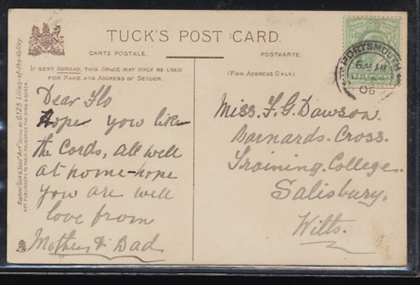 TUCK'S POST CARD.
CARTE POSTALE.
POSTKARTE.
IF SENT ABROAD, THIS SPACE MAY ONLY BE USED
FOR NAME AND ADDRESS OF SENDER.
(FOR ADDRESS ONLY.)
Dear Flo
Hope you like
the Cords, All well
at home-hope
you are well
love from
Mother & Dad
Miss. F. G. Dawson.
Barnards. Cross.
Training. College.
Salisbury.
Wilts.
PORTSMOUTH
08
Lilies-of-the-Valley.